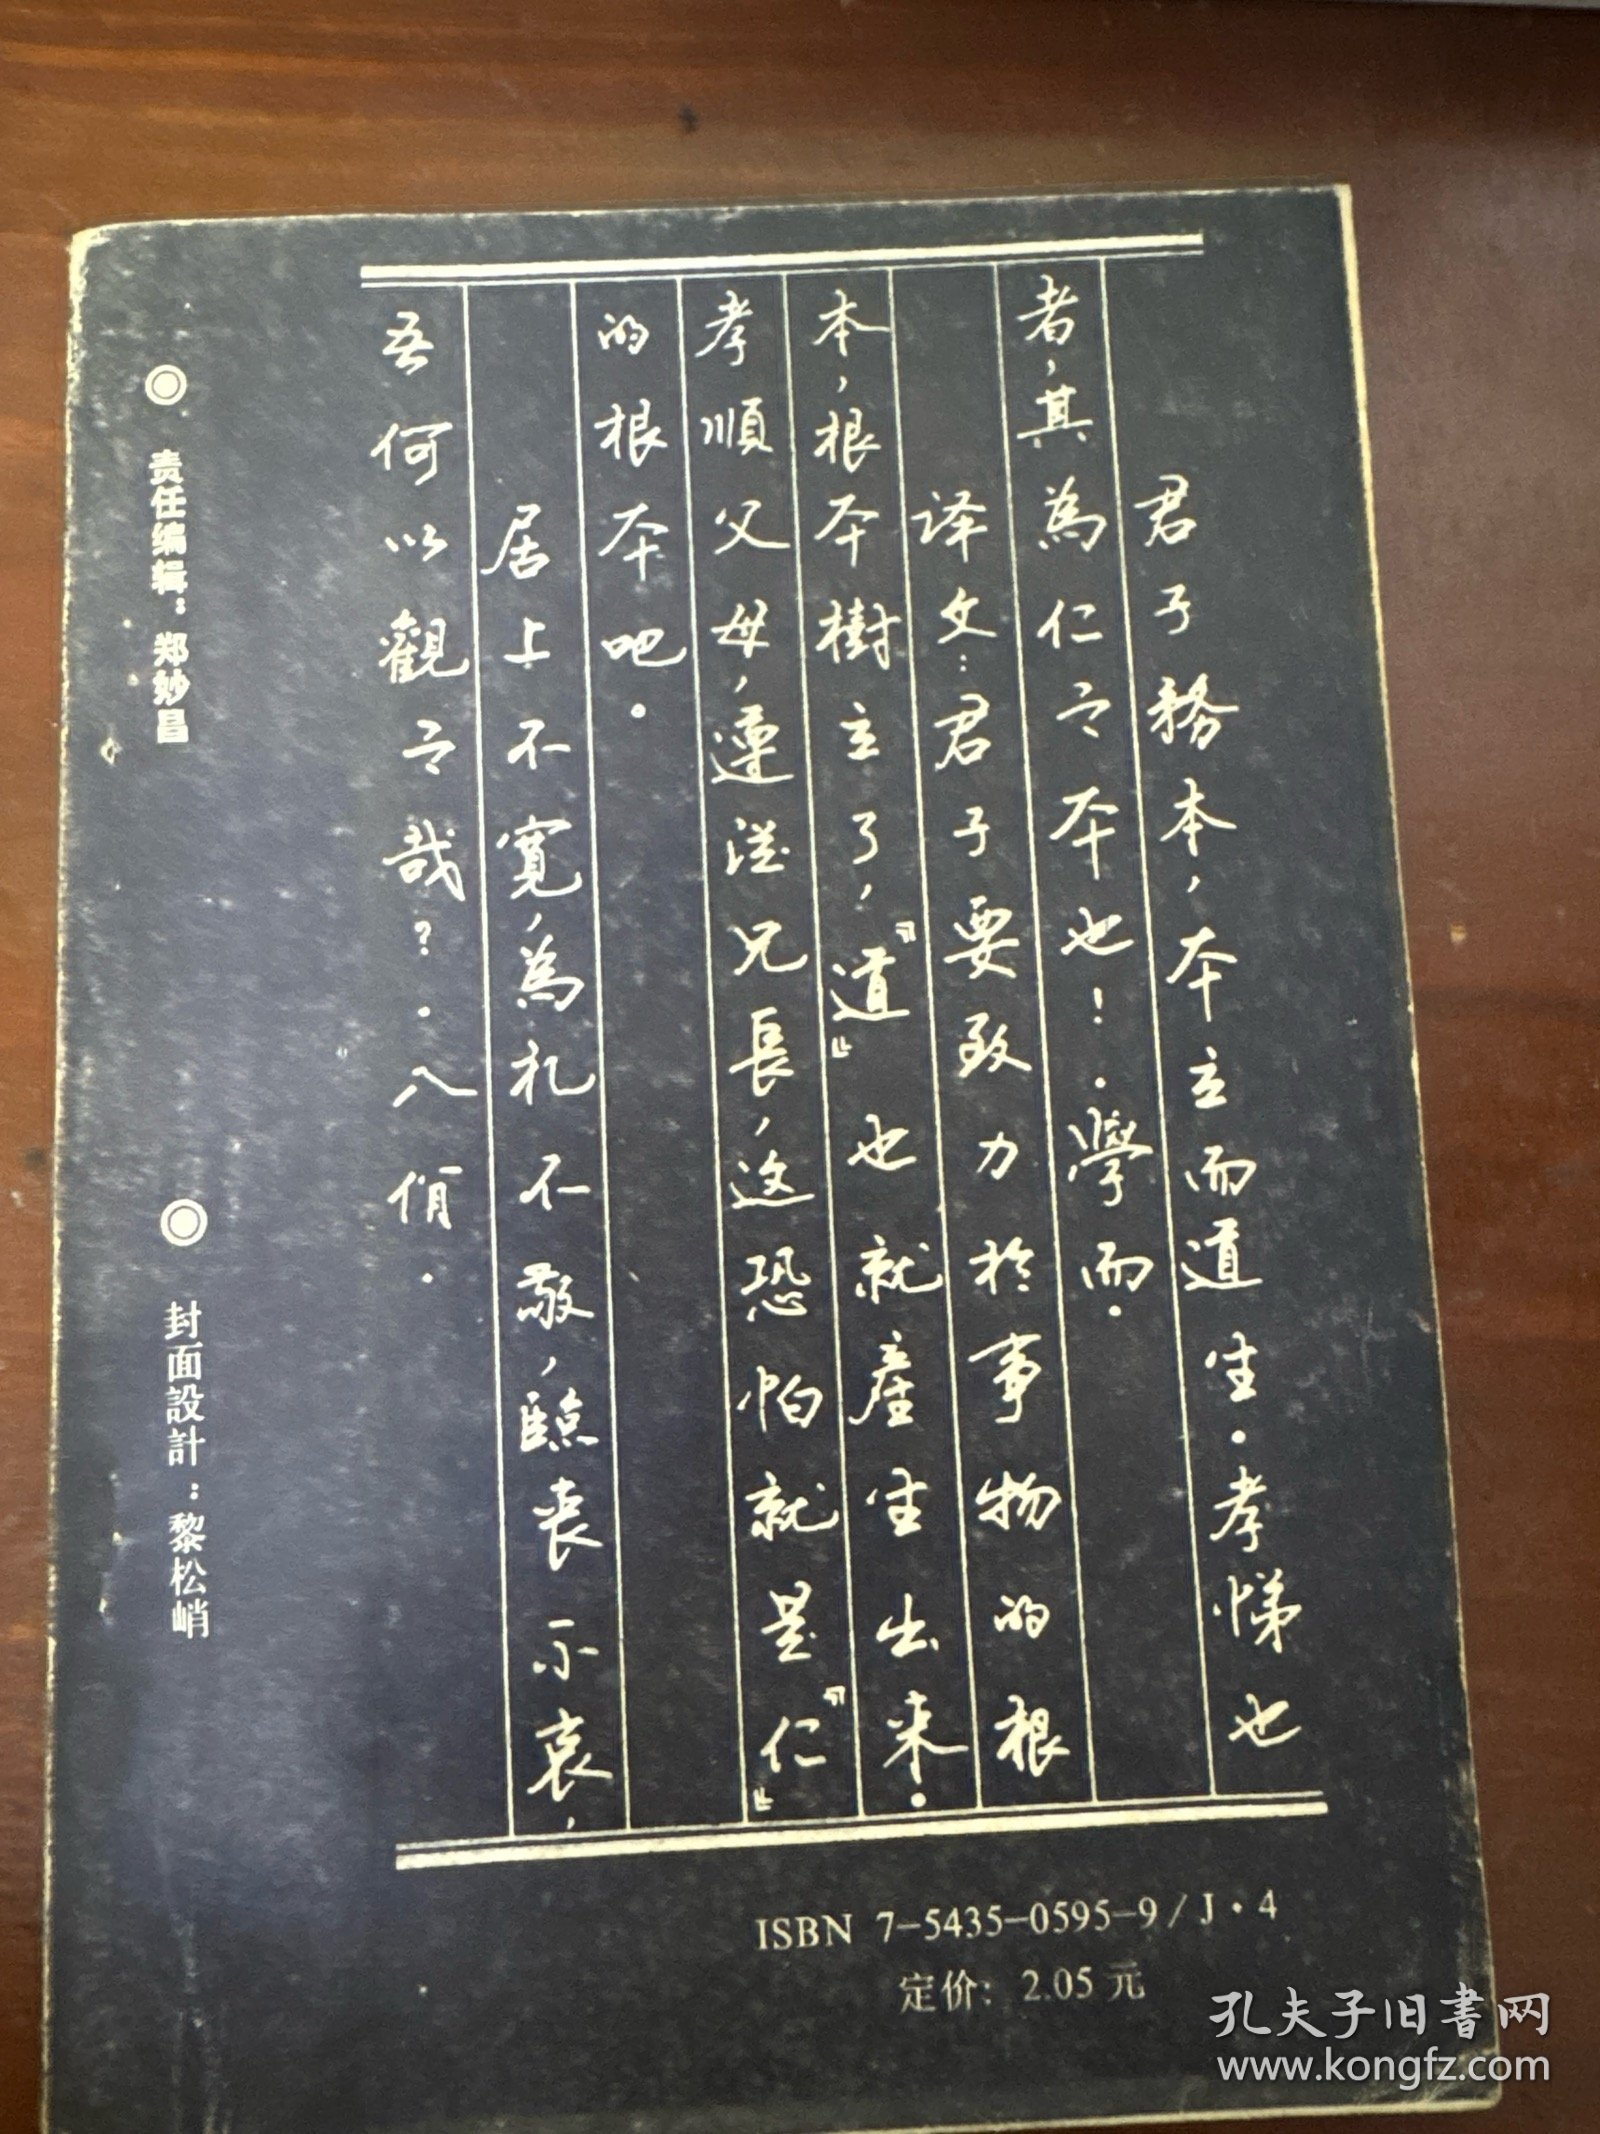 君子務本，本立而道生．孝悌也
者，其為仁之本也！．學而．
译文：君子要致力於事物的根
本，根本樹立了，『道』也就產生出来．
孝順父母，遵從兄長，这恐怕就是『仁』
的根本吧．
居上不寬，為礼不敬，臨喪不哀，
吾何以觀之哉？．八佾．
◎ 责任编辑：郑妙昌
◎ 封面設計：黎松峭
ISBN 7-5435-0595-9/J·4
定价：2.05元
孔夫子旧書网
www.kongfz.com